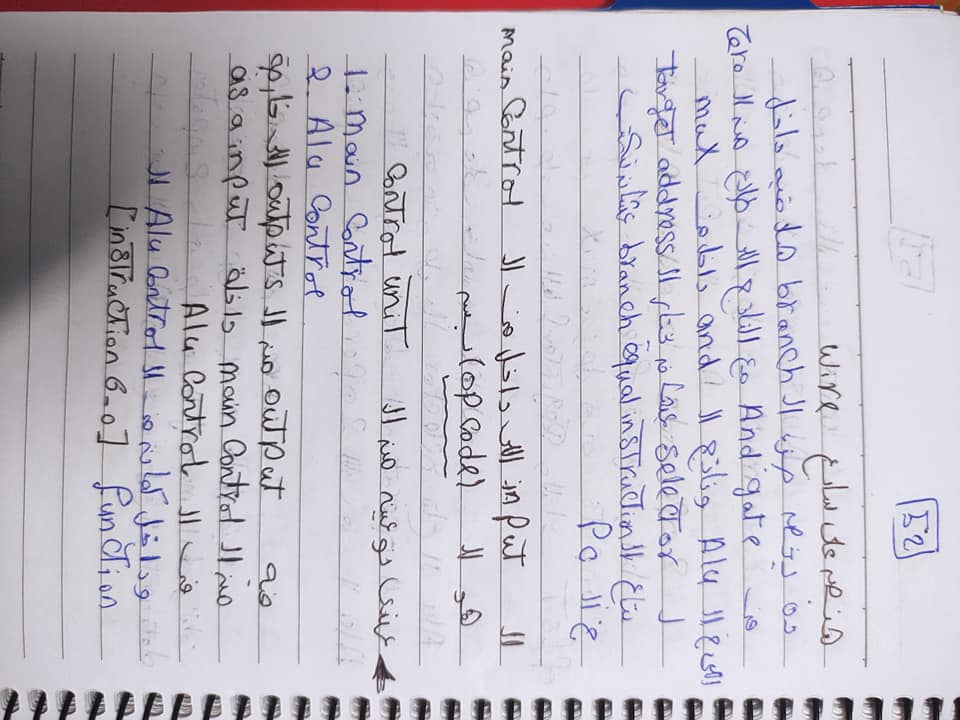 52
هنبص على سابع wire
ده بيخص جزء ال branch هلاقيه داخل
في And gate مع الناتج اللي طالع من ال Zero
اللي في ال Alu وناتج ال and داخل في mux
ل selector عشان نختار ال Target address
بتاع ال branch equal instruction عشان نكتب
في ال Pc
ال input اللي داخل في ال main Control
هو ال (op code) بس
عندى نوعين من ال Control unit
1. Main Control
2. Alu Control
فيه output من ال outputs اللى خارجة
من ال main Control داخلة as a input
في ال Alu Control
وداخل كمان في ال Alu Control ال
function [instruction 6-0]